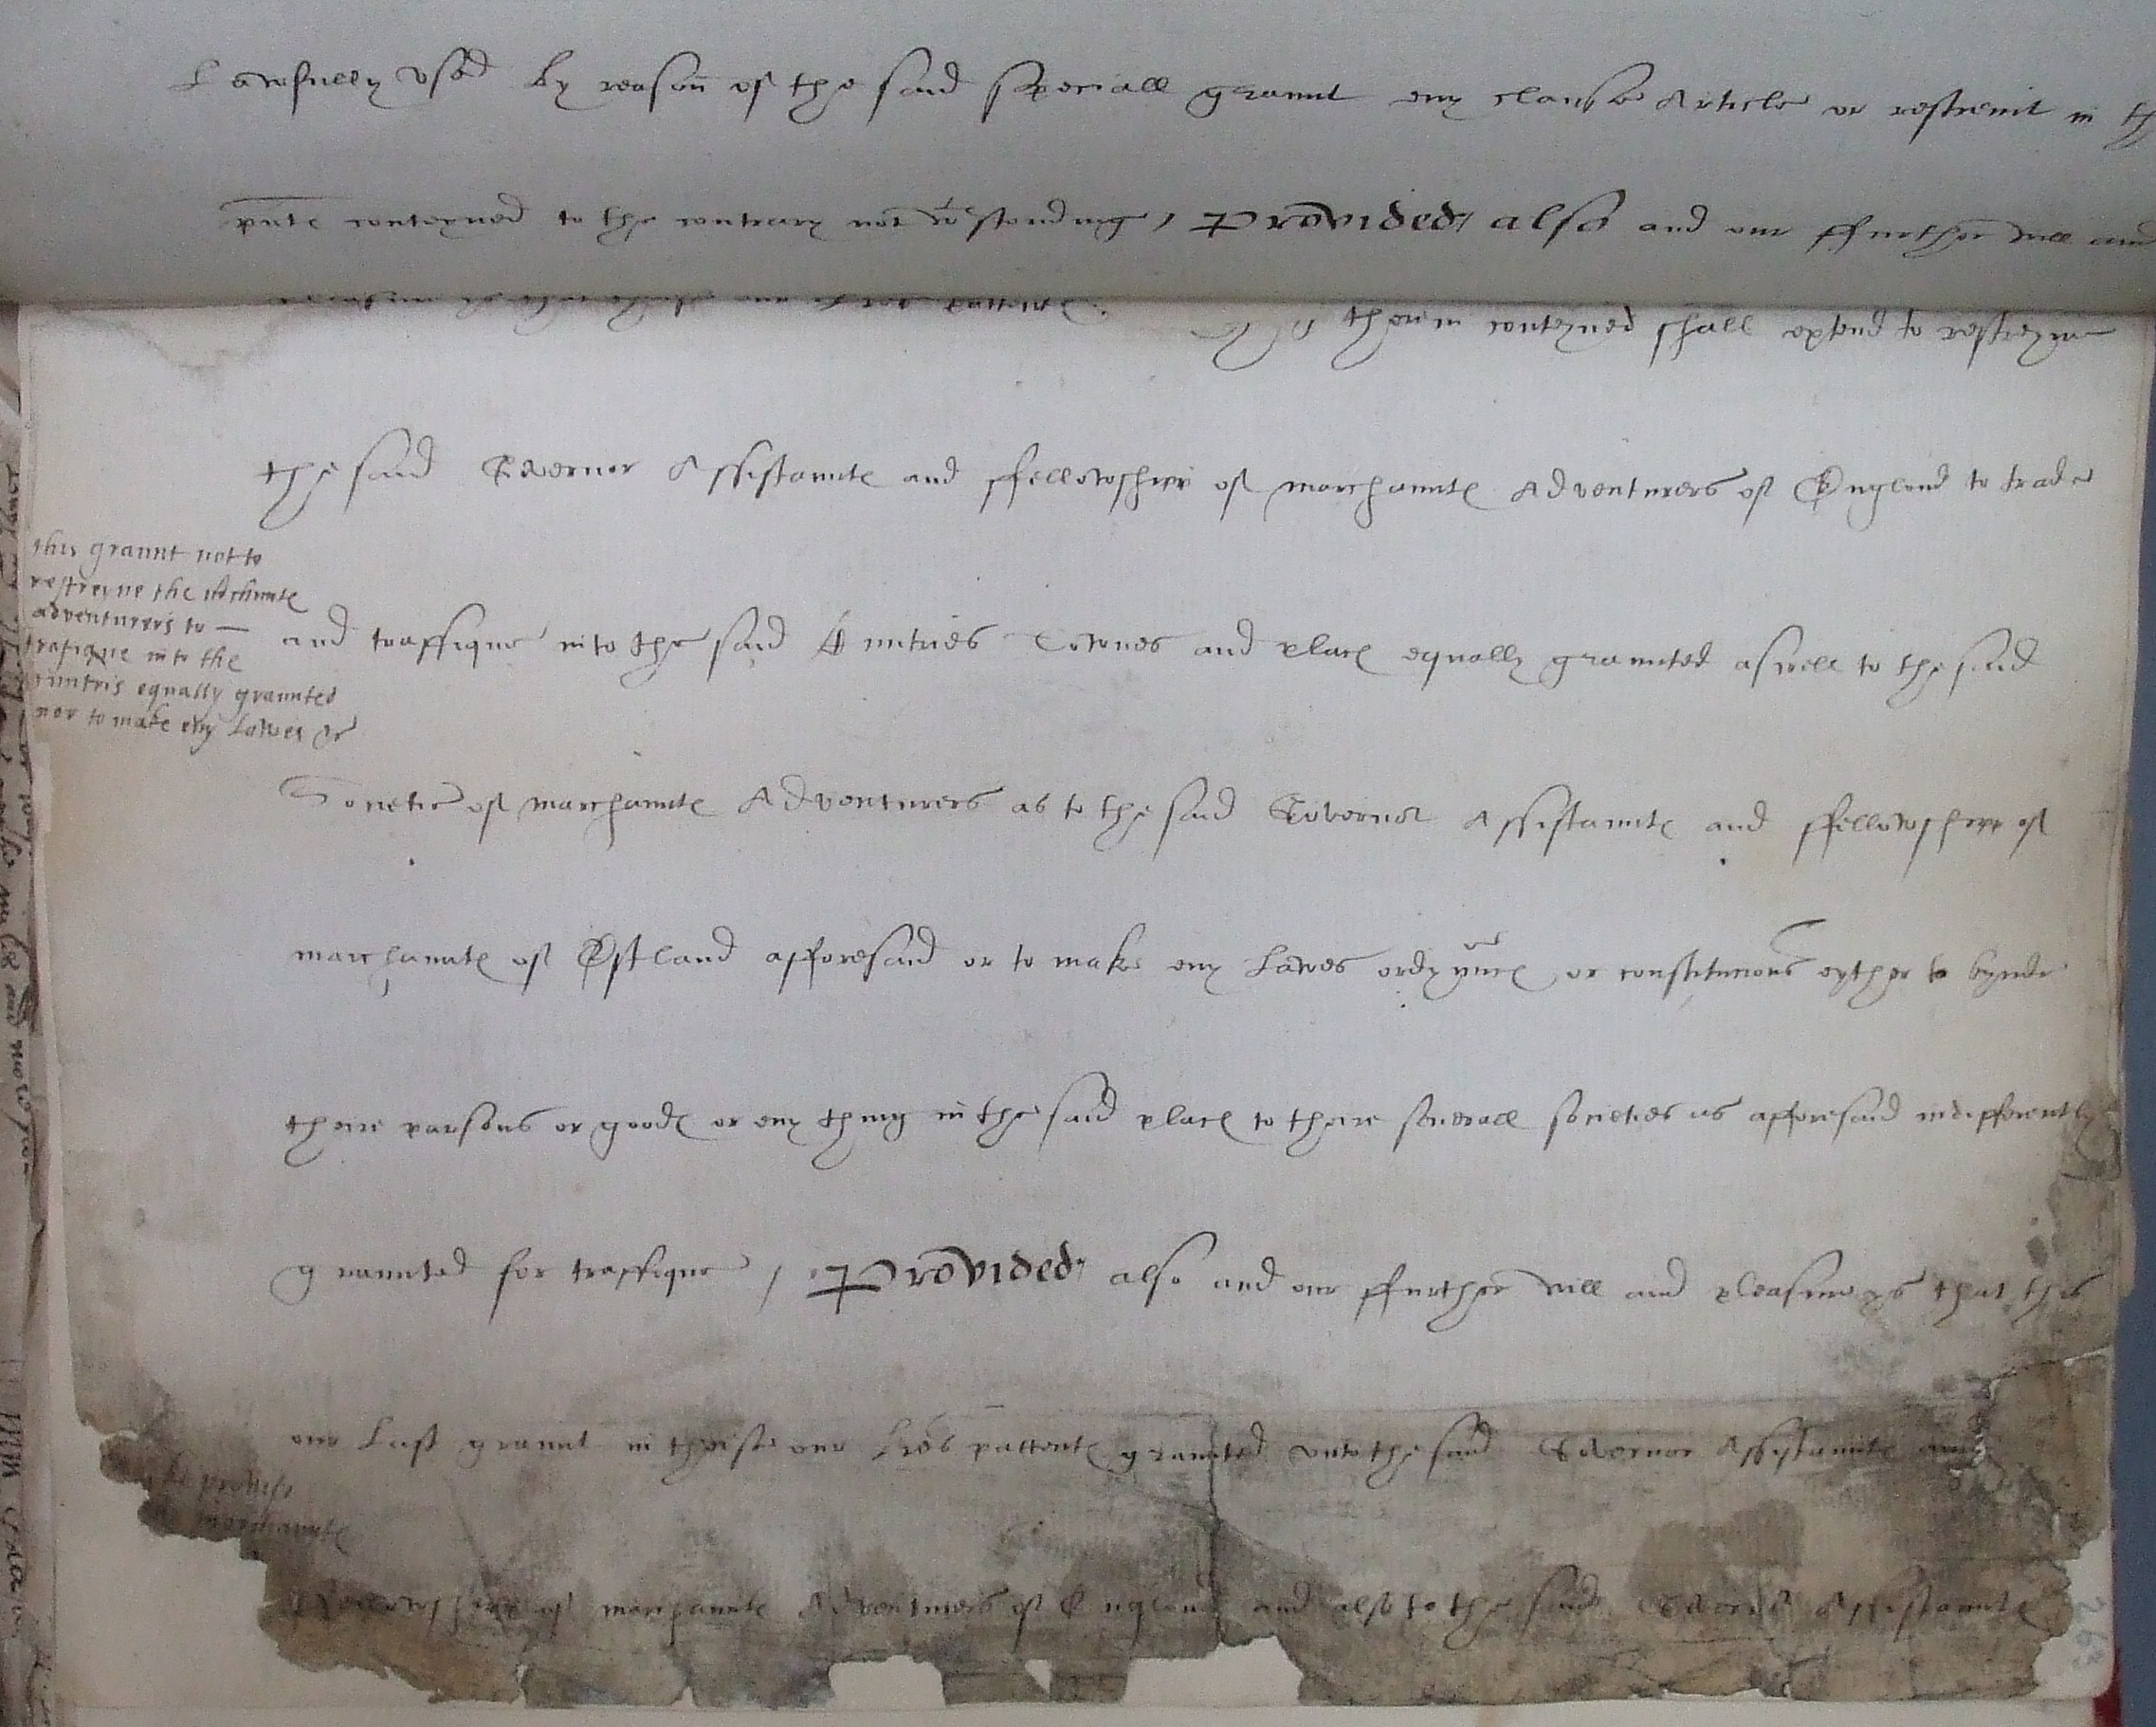 Lawfully vsed by reason of the said speciall graunt eny clause Article or restreint in th
pnte conteyned to the contrary not wtstanding, Provided also and our ffurther will and
pleasure is that theise our lres pattente
therin conteyned shall extend to restreyne
the said Governor Assistaunte and ffellowshipp of marchaunte Adventurers of England to trade
this graunt not to
restreyne the m'chaunte
adventurers to —
trafique into the
cuntris equally graunted
nor to make eny Lawes &c
and traffique into the said Cuntries Townes and place equally graunted aswell to the said
Societie of marchaunte Adventurers as to the said Governor Assistaunte and ffellowshipp of
marchaunte of Estland afforesaid or to make eny Lawes ordynnce or constitucions eyther to bynde
theire parsons or goode or eny thing in the said place to theire severall societies as afforesaid indifferently
graunted for traffique, Provided also and our ffurther will and pleasure ys that this
our Last graunt in theise our lres pattente graunted vnto the said Governor Assystaunte and
proviso
marchaunte
ffellowshipp of marchaunte Adventurers of England and also to the said Governor Assistaunte